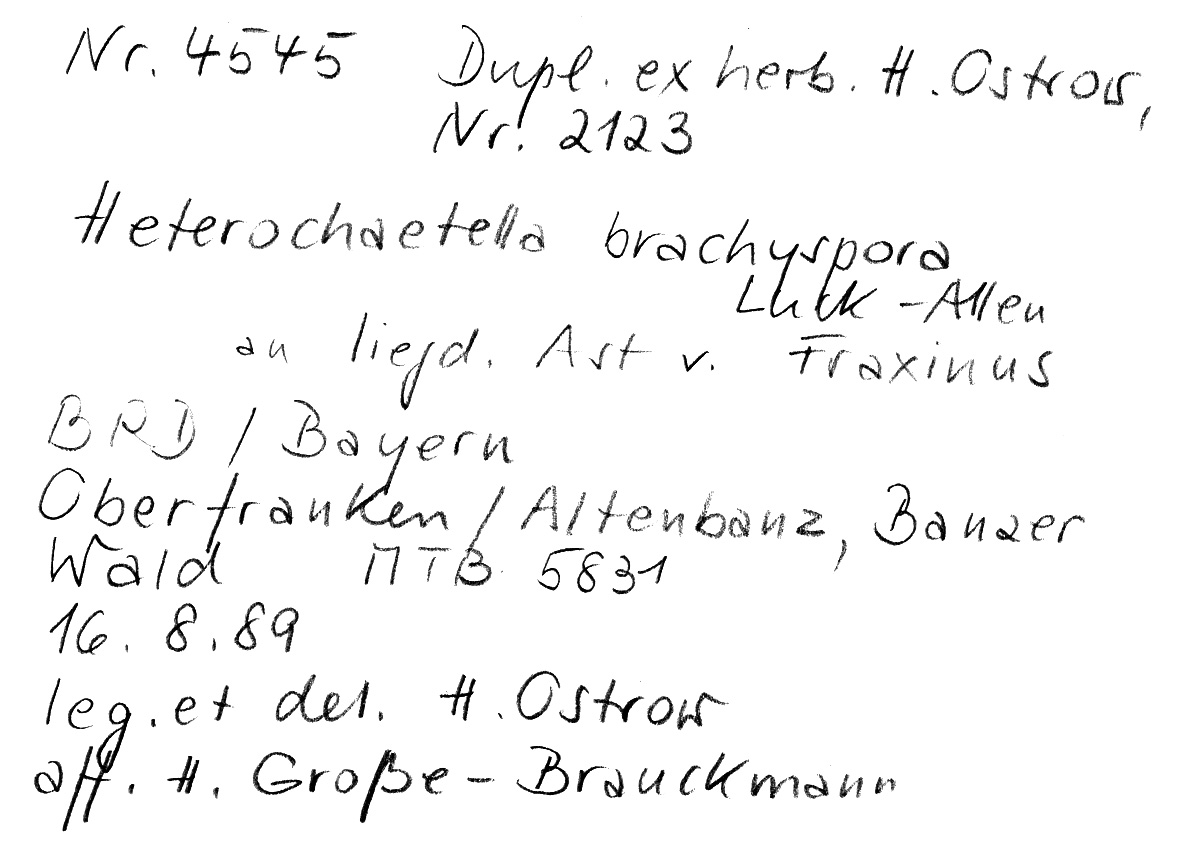 Nr. 4545 Dupl. ex herb. H. Ostrow,
Nr. 2123
Heterochaetella brachyspora
Luck-Allen
an liegd. Ast v. Fraxinus
BRD / Bayern
Oberfranken / Altenbanz, Banzer
Wald MTB 5831
16. 8. 89
leg. et det. H. Ostrow
aff. H. Große-Brauckmann